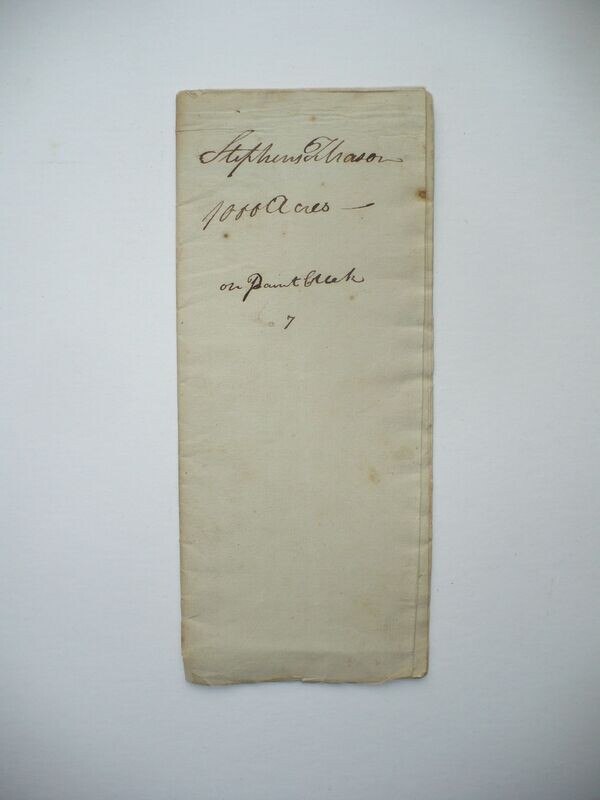 Stephens T Mason
1000 Acres —
on Paint Creek
7